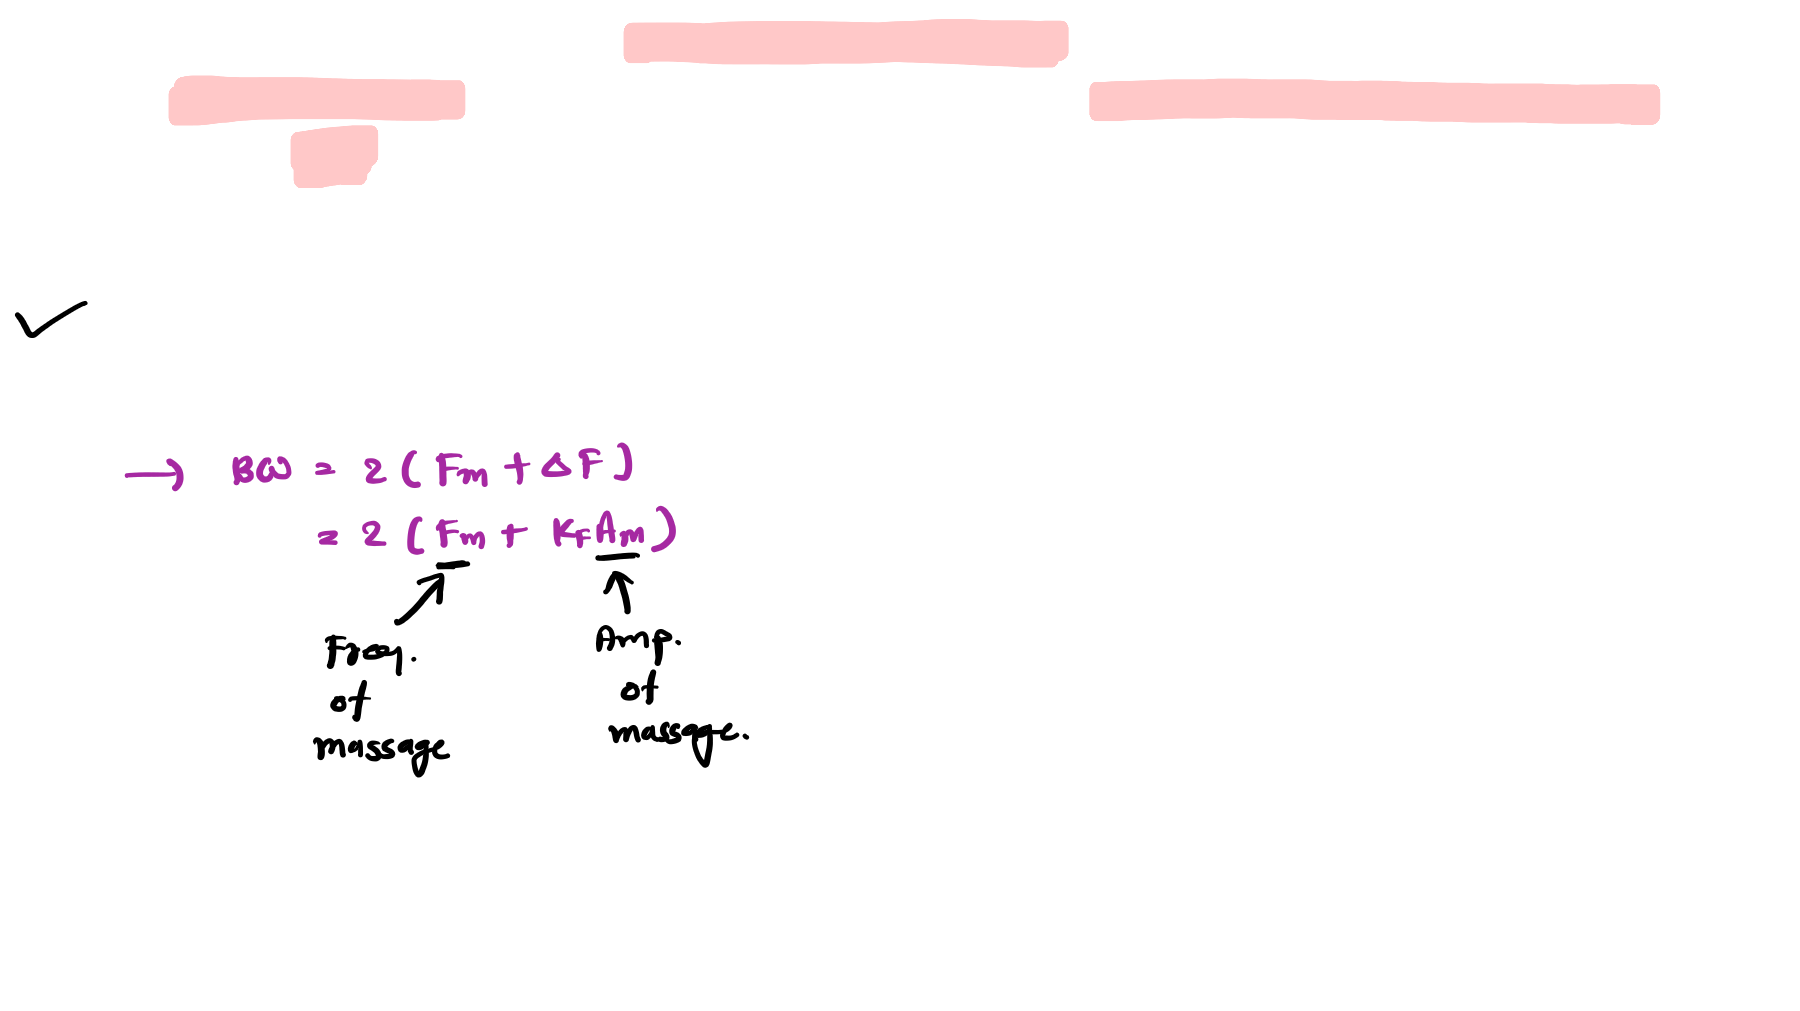 → BW = 2 ( Fm + ΔF )
= 2 ( Fm + KFAm )
Freq. of massage
Amp. of massage.